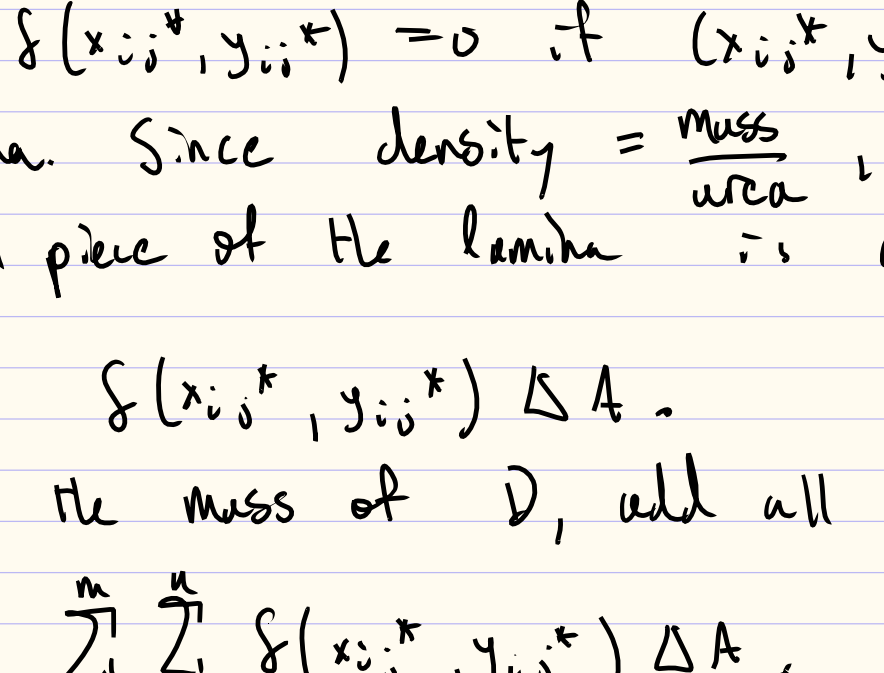 δ(x_ij*, y_ij*) = 0 if (x_ij*, y
a. Since density = mass/area,
piece of the lamina is
δ(x_ij*, y_ij*) ΔA.
the mass of D, add all
m n
Σ Σ δ(x_ij*, y_ij*) ΔA